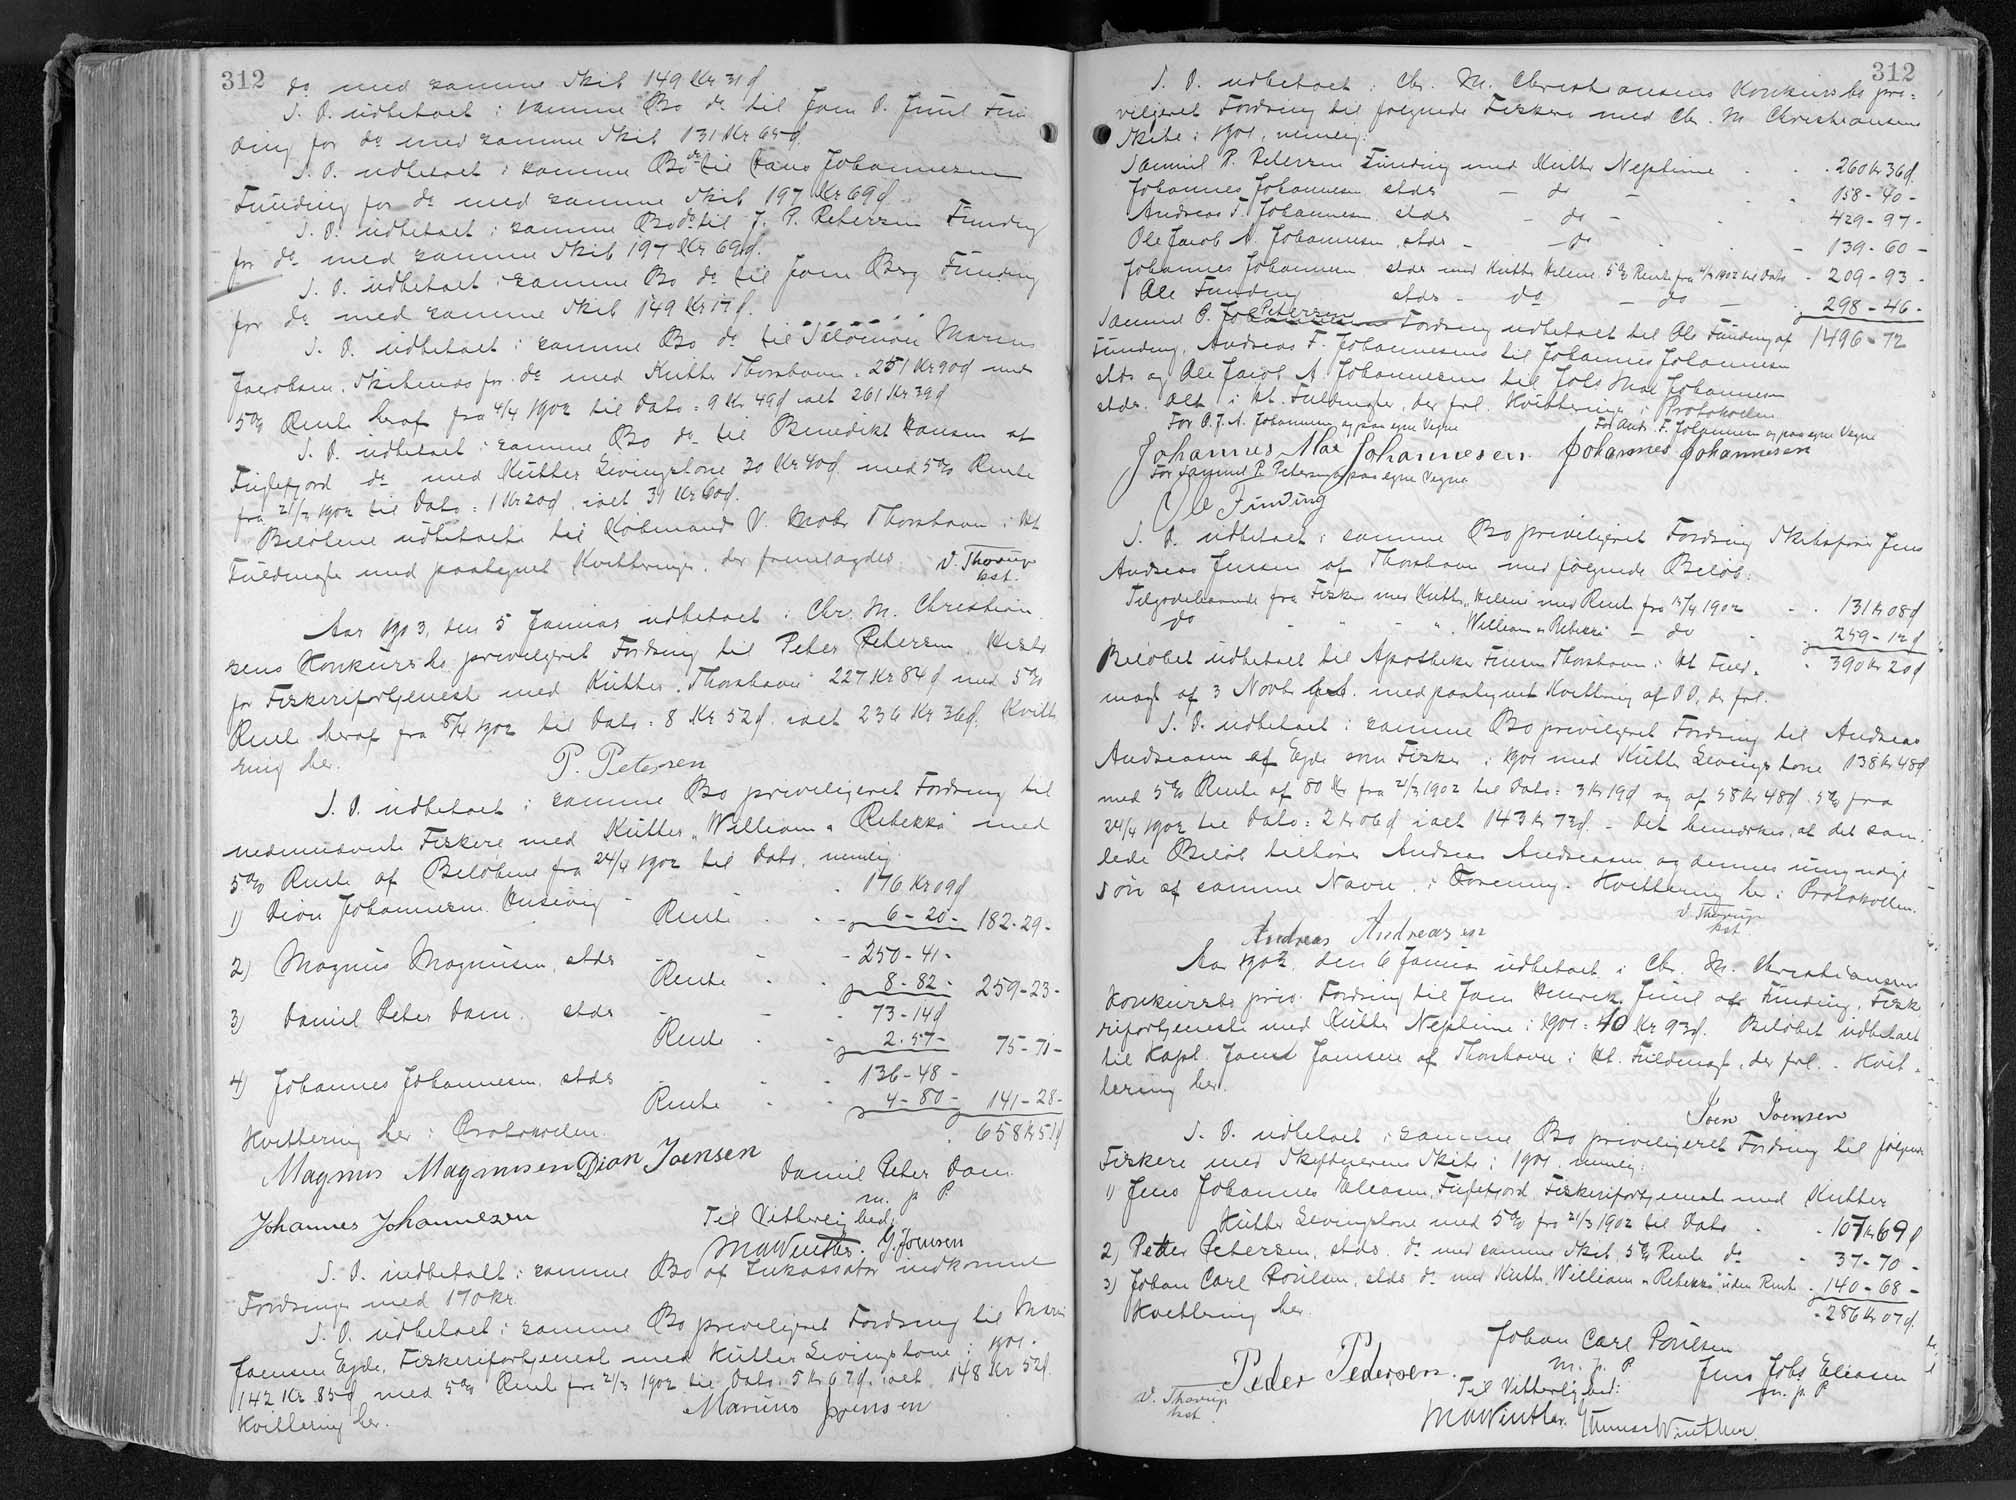 312
do med samme Skib 149 Kr 31 d
S. D. udbetalt i samme Bo do til Joen D. Juul Fun
ding for do med samme Skib 131 Kr 65 d.
S. D. udbetalt i samme Bo do til Hans Johannesen
Funding for do med samme Skib 197 Kr 69 d.
S. D. udbetalt i samme Bo do til J. P. Petersen Funding
for do med samme Skib 197 Kr 69 d.
S. D. udbetalt i samme Bo do til Joen Berg Funding
for do med samme Skib 149 Kr 17 d.
S. D. udbetalt i samme Bo do til Salomon Marius
Jacobsen, for do med Kutter Thorshavn = 251 Kr 90 d med
5% Rente heraf fra 4/4 1902 til Dato = 9 Kr 49 d ialt 261 Kr 39 d
S. D. udbetalt i samme Bo do til Benedikt Hansen af
Fuglefjord do med Kutter Livingstone 30 Kr 40 d med 5% Rente
fra 21/3 1902 til Dato = 1 Kr 20 d, ialt 31 Kr 60 d.
Beløbene udbetalte til Købmand V. Mohr Thorshavn i Kt
Fuldmagt med paategnet Kvitteringer, der fremlagdes. V. Thorup
kst.
Aar 1903, den 5 Januar udbetalt i Chr. M. Christian
sens Konkursbo privilegeret Fordring til Peter Petersen,
for Fiskerifortjeneste med Kutter "Thorshavn" 227 Kr 84 d med 5%
Rente heraf fra 8/4 1902 til Dato = 8 Kr 52 d. ialt 236 Kr 36 d. Kvitte
ring her. P. Petersen
S. D. udbetalt i samme Bo privilegeret Fordring til
nedennævnte Fiskere med Kutter "William & Rebekka" med
5% Rente af Beløbene fra 24/4 1902 til Dato, nemlig
1) Dion Johannesen Husevig - - 176 Kr 09 d
Rente - - 6 - 20 - 182 - 29 -
2) Magnus Magnusen, stds - - 250 - 41 -
Rente - - 8 - 82 - 259 - 23 -
3) Daniel Peter Dam. stds - - 73 - 14 d
Rente - - 2 . 57 - 75 - 71 -
4) Johannes Johannesen, stds - - 136 - 48 -
Rente - - 4 - 80 - 141 - 28 -
Kvittering her i Protokollen. 658 Kr 51 d
Magnus Magnusen Dian Joensen
Daniel Peter Dam
m. p. P
Johannes Johannesen
Til Vitterlighed:
MAWinther. G. Joensen
S. D. indbetalt i samme Bo af Inkassator indkomne
Fordringer med 170 kr.
S. D. udbetalt i samme Bo privilegeret Fordring til Marius
Joensen Ejde, Fiskerifortjenest med Kutter Livingstone i 1901.
142 Kr. 85 d, med 5% Rente fra 21/3 1902 til Dato. 5 Kr 67 d. ialt 148 Kr 52 d.
Kvittering her. Marius Joensen
312
S. D. udbetalt i Chr. M. Christiansens Konkursbo pri=
vilegeret Fordring til følgende Fiskere med Chr. M Christiansens
Skibe i 1901, nemlig:
Samuel P. Petersen Funding med Kutter Neptune - . 260 Kr 36 d.
Johannes Johannesen stds - do - - 158 - 40 -
Andreas F. Johannesen stds - do - - 429 - 97 -
Ole Jacob A. Johannesen, stds - - do - 139 - 60 -
Johannes Johannesen stds med Kutter Helene 5% Rente fra 4/4 1902 til Dato - 209 - 93 -
Ole Funding stds - do - do - 298 - 46 -
1496 - 72
Samuel P. Petersen Fordring udbetalt til Ole Funding af
Funding, Andreas F. Johannesens til Johannes Johannesen
stds og Ole Jacob A. Johannesens til Johs Mae Johannesen
stds. Alt i Kt. Fuldmagter, der frl. Kvitteringer i Protokollen.
For O. J. A. Johannesen og paa egne Vegne
For Andr. F. Johannesen og paa egne Vegne
Johannes Mae Johannesen. Johannes Johannesen
For Samuel P. Petersen og paa egne Vegne
Ole Funding
S. D. udbetalt i samme Bo privilegeret Fordring Skibsfører Jens
Andreas Jensen af Thorshavn med følgende Beløb:
Tilgodehavende fra Fiskeri med Kutter "Helene" med Rente fra 14/4 1902 - . 131 Kr 08 d
do " " - " William & Rebekka - do - 259 - 12 d
Beløbet udbetalt til Apotheker Finsen Thorshavn i Kt Fuld= . 390 Kr 20 d
magt af 3 Novb med paategnet Kvittering af DD, der frl.
S. D. udbetalt i samme Bo privilegeret Fordring til Andreas
Andreasen af Ejde som Fisker i 1901 med Kutter Livingstone 138 Kr 48 d
med 5% Rente af 80 Kr fra 21/3 1902 til Dato = 3 Kr 19 d og af 58 Kr 48 d. 5% fra
24/4 1902 til Dato = 2 Kr 06 d ialt 143 Kr 73 d. - Det bemærkes, at det sam
lede Beløb tilhører Andreas Andreasen og dennes umyndige
Søn af samme Navn i Forening. Kvittering her i Protokollen.
V. Thorup
kst
Andreas Andreasen
Aar 1903, den 6 Januar udbetalt i Chr. M. Christiansens
Konkursbo priv. Fordring til Joen Henrik Juul af Funding, Fiske
rifortjeneste med Kutter Neptune i 1901 = 40 Kr 93 d. Beløbet udbetalt
til Kapt. Joens Joensen af Thorshavn i Kt. Fuldmagt, der frl. - Kvit=
tering her.
Joen Joensen
S. D. udbetalt i samme Bo privilegeret Fordring til følgende
Fiskere med Skyldnerens Skibe i 1901 nemlig:
1) Jens Johannes Eliasen, Fuglefjord, Fiskerifortjenest med Kutter
Kutter Livingstone med 5% fra 21/3 1902 til Dato - . 107 Kr 69 d
2) Peter Petersen, stds. do med samme Skib, 5% Rente do - 37 - 70 -
3) Johan Carl Poulsen, stds do med Kutter "William & Rebekka" uden Rente . 140 - 68 -
Kvittering her. - 286 Kr 07 d.
Johan Carl Poulsen
m. p. P
Peder Pedersen.
Jens Johs Eliasen
m. p. P
V. Thorup
kst.
Til Vitterlighed:
MAWinther. Winther.